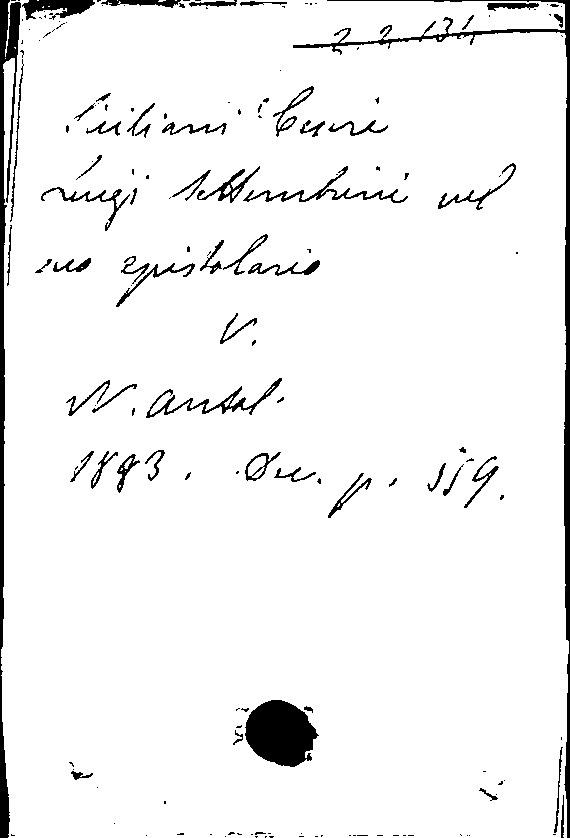 2. 2. 134
Siciliani Cesare
Luigi Settembrini nel
suo epistolario
V.
N. Antol.
1883. Dic. p. 559.